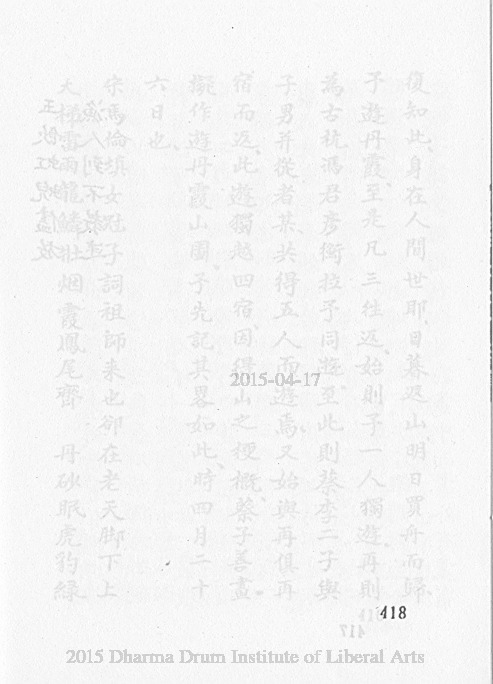 復知此身在人間世耶日暮返山明日買舟而歸
予遊丹霞至是凡三往返始則予一人獨遊再則
為古杭馮君彥衡拉予同遊至此則蔡李二子與
子男并從者某共得五人而遊焉又始與再俱再
宿而返此遊獨越四宿因得山之梗概蔡子善畫
擬作遊丹霞山圖予先記其畧如此時四月二十
六日也
宋馮倫填女冠子詞祖師來也卻在老天脚下上
大梯雲雨龍鱗壯烟霞鳳尾齋 丹砂眠虎豹綠
2015-04-17
418
417
2015 Dharma Drum Institute of Liberal Arts